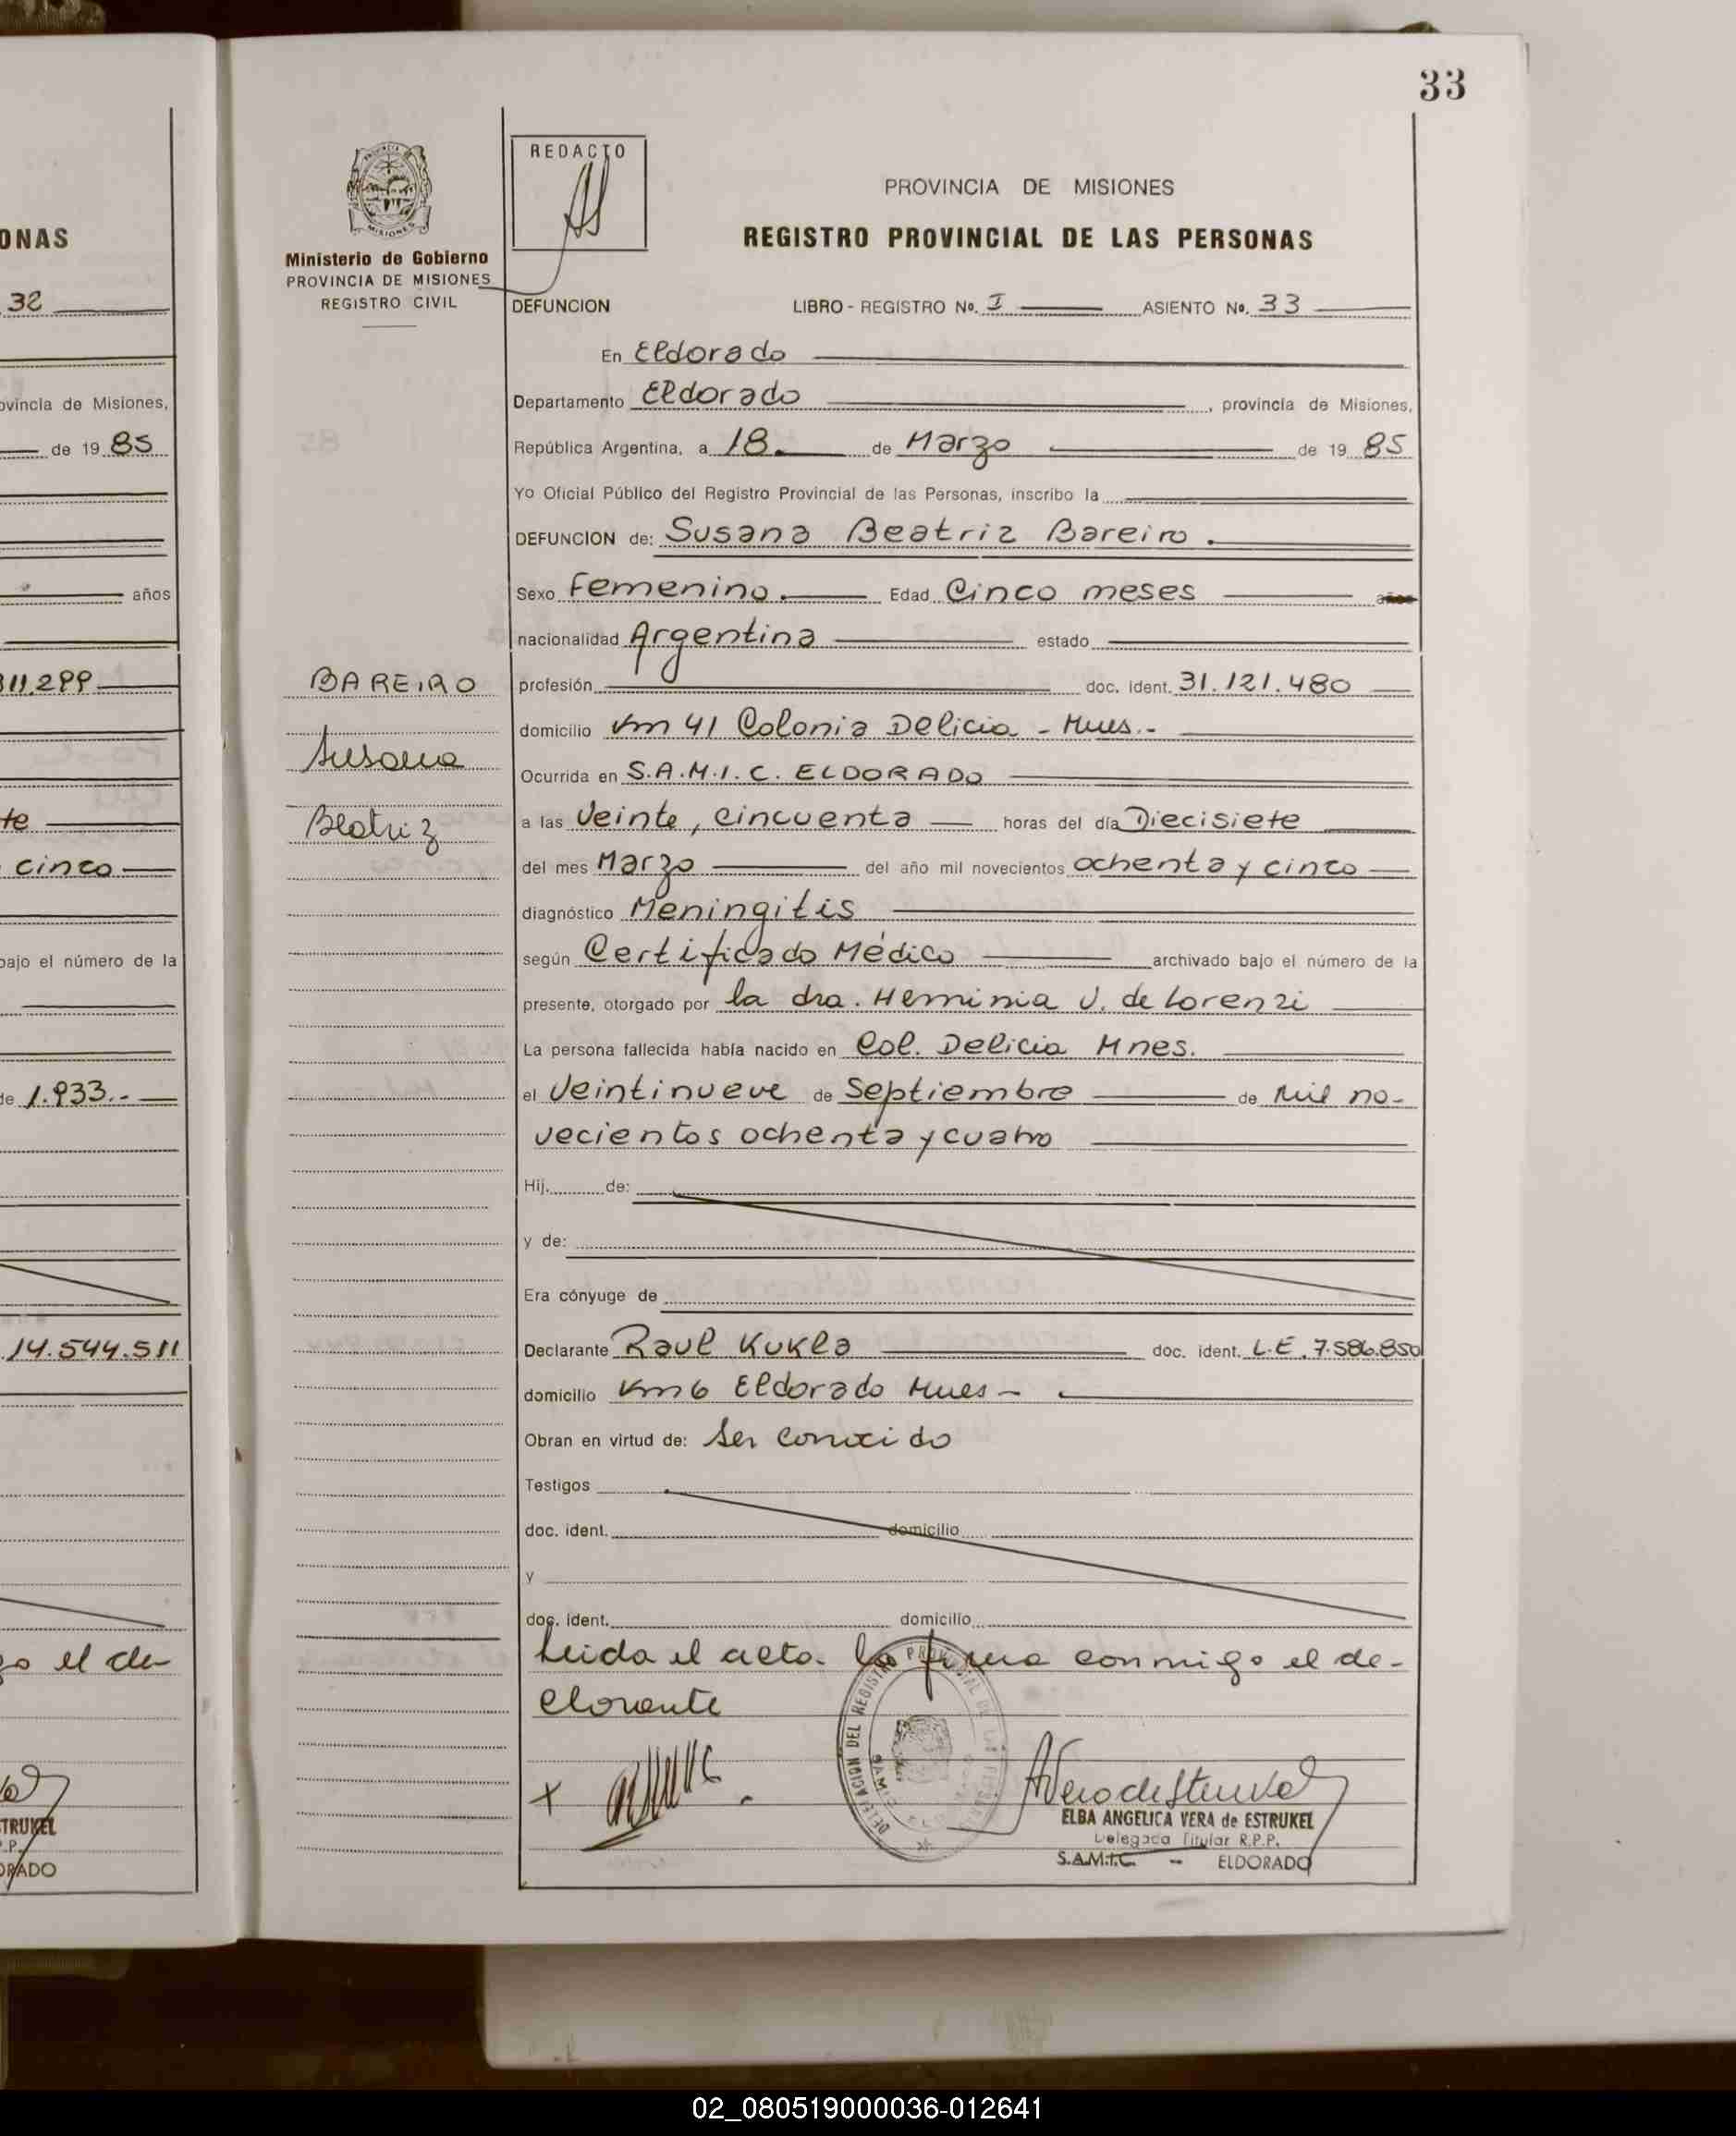 33
ONAS
32
ovincia de Misiones,
de 19 85
años
811.299
te
cinco
bajo el número de la
de 1.933.-
14.544.511
go el de-
TRUKEL
P.P.
ORADO
PROVINCIA
MISIONES
Ministerio de Gobierno
PROVINCIA DE MISIONES
REGISTRO CIVIL
BAREIRO
Susana
Beatriz
REDACTO
PROVINCIA DE MISIONES
REGISTRO PROVINCIAL DE LAS PERSONAS
DEFUNCION LIBRO - REGISTRO No. I ASIENTO No. 33
En Eldorado
Departamento Eldorado, provincia de Misiones,
República Argentina, a 18. de Marzo de 19 85
Yo Oficial Público del Registro Provincial de las Personas, inscribo la
DEFUNCION de: Susana Beatriz Bareiro.
Sexo Femenino. Edad Cinco meses años
nacionalidad Argentina estado
profesión doc. ident. 31.121.480
domicilio Km 41 Colonia Delicia - Mnes.-
Ocurrida en S.A.M.I.C. ELDORADO
a las Veinte, cincuenta horas del día Diecisiete
del mes Marzo del año mil novecientos ochenta y cinco
diagnóstico Meningitis
según Certificado Médico archivado bajo el número de la
presente, otorgado por la dra. Herminia V. de Lorenzi
La persona fallecida había nacido en Col. Delicia Mnes.
el Veintinueve de Septiembre de Mil no-
vecientos ochenta y cuatro
Hij. de:
y de:
Era cónyuge de
Declarante Raul Kukla doc. ident. L.E. 7.586.850
domicilio Km 6 Eldorado Mnes -
Obran en virtud de: Ser conocido
Testigos
doc. ident. domicilio
y
doc. ident. domicilio
Leida el acta. la firma conmigo el de-
clarante
DELEGACION DEL REGISTRO PROVINCIAL DE LAS PERSONAS
ELBA ANGELICA VERA de ESTRUKEL
Delegada Titular R.P.P.
S.A.M.I.C. - ELDORADO
02_080519000036-012641